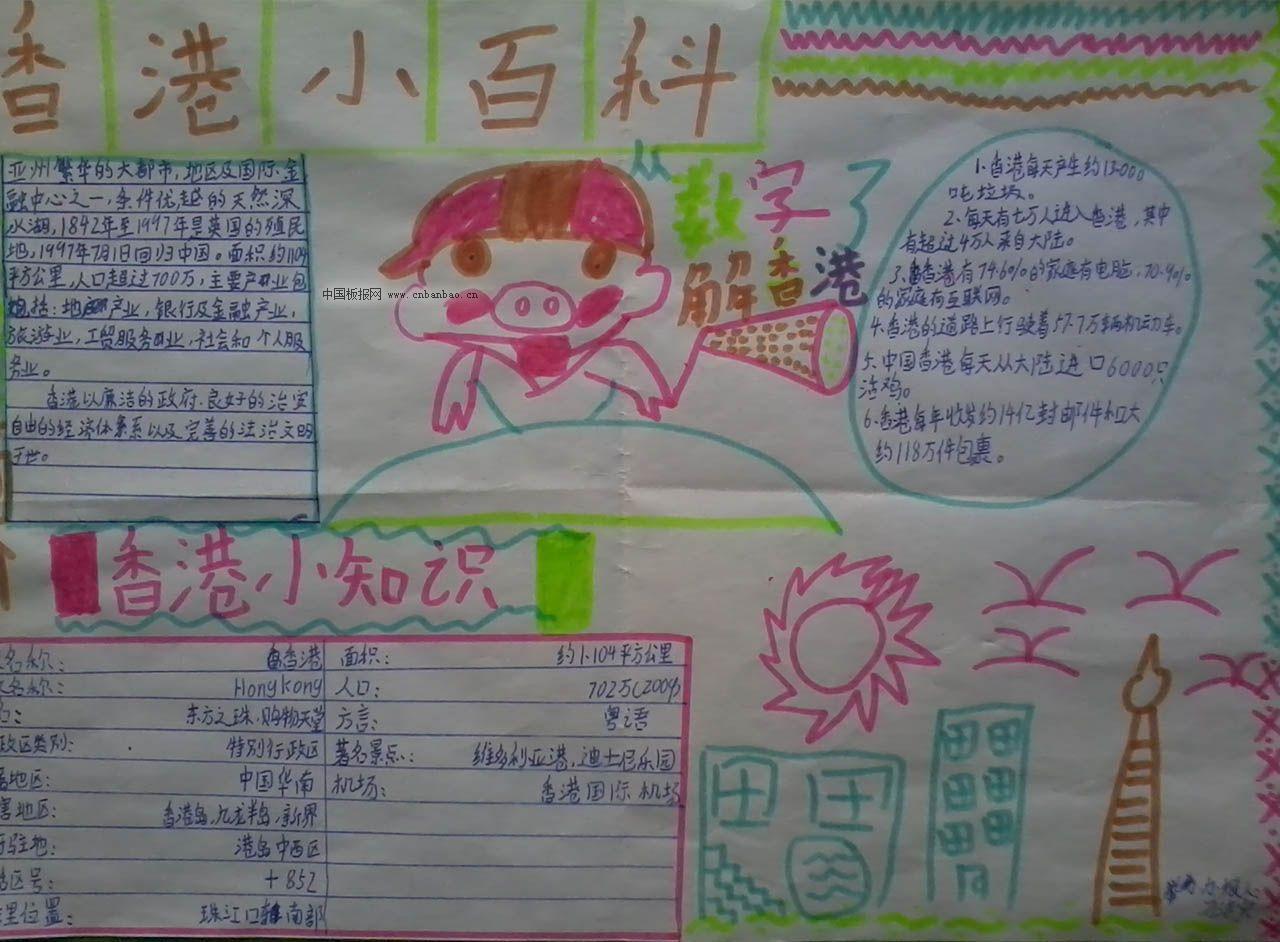 香港小百科
亚州繁华的大都市，地区及国际金
融中心之一，条件优越的天然深
水湖，1842年至1997年是英国的殖民
地，1997年7月1日回归中国。面积约1104
平方公里，人口超过700万，主要产业包
括：地产业，银行及金融产业，
旅游业，工贸服务业，社会和个人服
务业。
香港以廉洁的政府、良好的治安
自由的经济体系以及完善的法治文明
于世。
中国板报网 www.cnbanbao.cn
从数字了
解香港
1.香港每天产生约13000
吨垃圾。
2、每天有七万人进入香港，其中
有超过4万人来自大陆。
3、香港有74.6%的家庭有电脑，70.9%
的家庭有互联网。
4.香港的道路上行驶着57.7万辆机动车。
5、中国香港每天从大陆进口6000只
活鸡。
6.香港每年收发约14亿封邮件和大
约118万件包裹。
香港小知识
名称： 香港 面积： 约1104平方公里
名称： Hong Kong 人口： 702万(2009)
： 东方之珠、购物天堂 方言： 粤语
政区类别： 特别行政区 著名景点： 维多利亚港，迪士尼乐园
地区： 中国华南 机场： 香港国际机场
地区： 香港岛，九龙半岛，新界
驻地： 港岛中西区
区号： +852
里位置： 珠江口南部